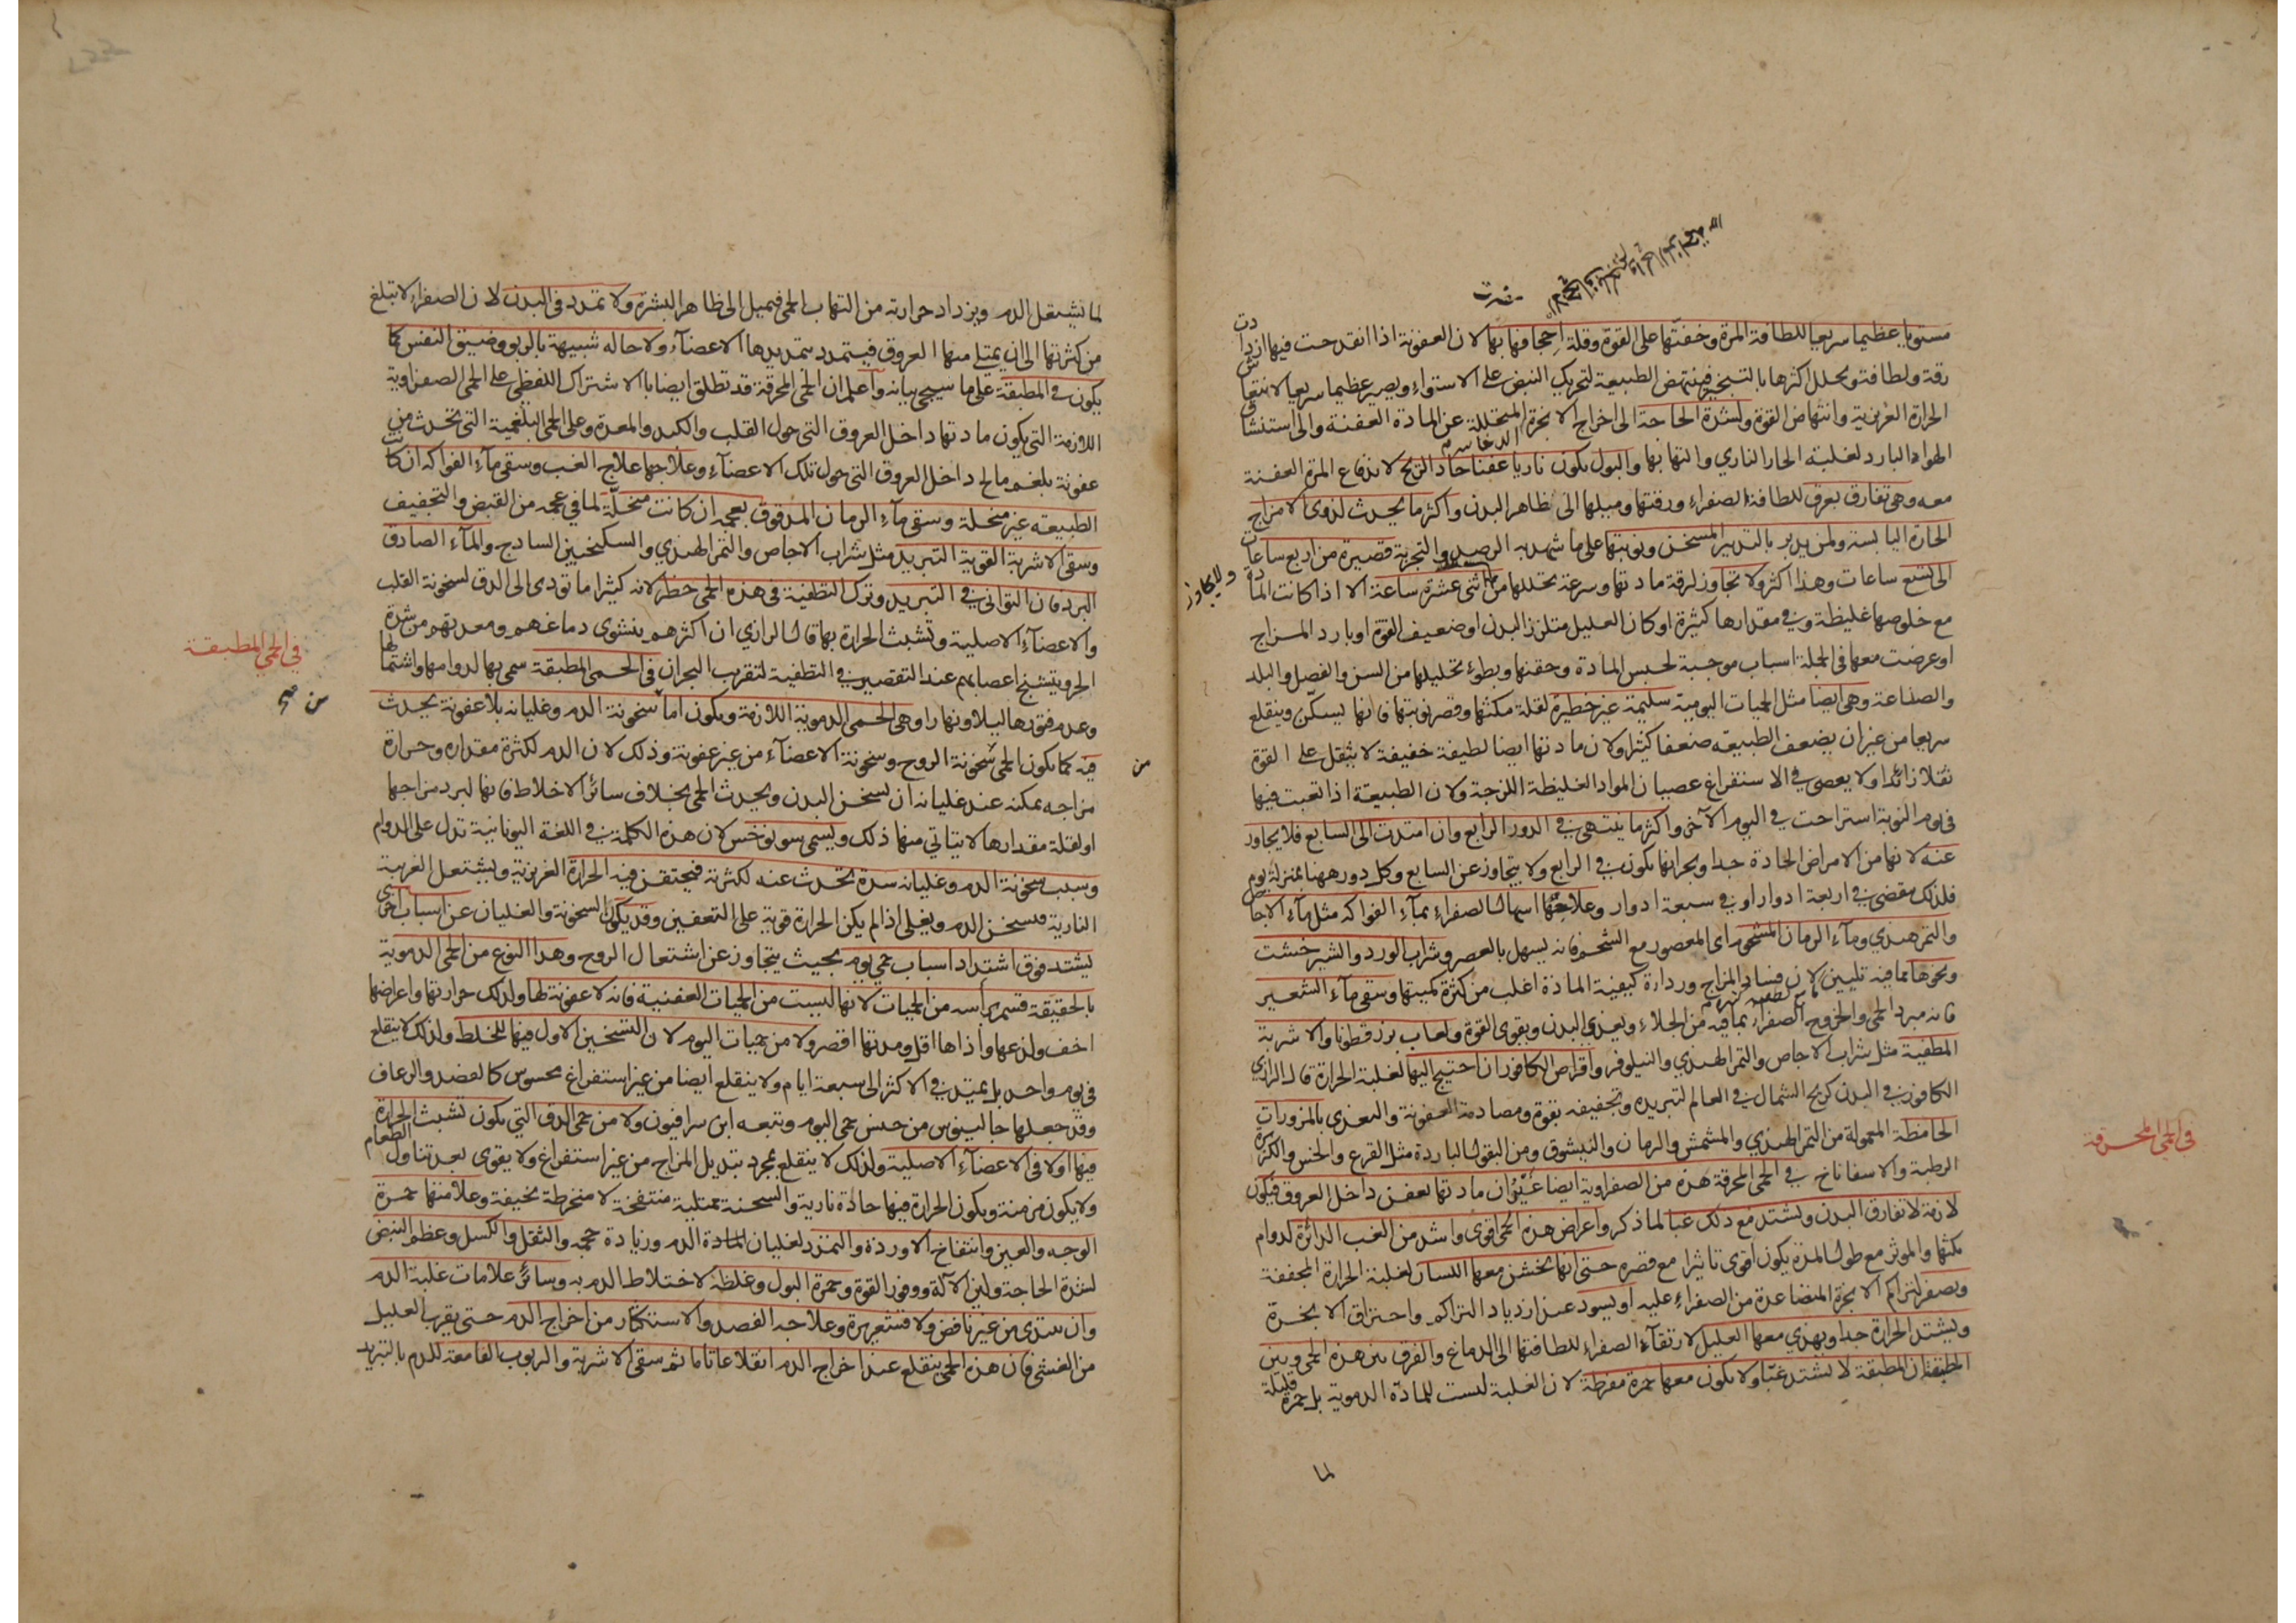 مستويا عظيما سريعا للطافة المرة وخفتها على القوة وقلة احجافها بها لان العفونة اذا انقدحت فيها ازدادت
رقة ولطافة وتحلل اكثرها بالتبخير فينتهض الطبيعة لتحريك النبض على الاستواء ويصير عظيما سريعا لانتعاش
الحرارة الغريزية وانتهاض القوة ولشدة الحاجة الى اخراج الابخرة المتحللة عن المادة العفنة والى استنشاق
الهواء البارد لغلبة الحار الناري والتهابها والبول يكون ناريا عفنا حاد الريح لاندفاع المرة العفنة
معه وهى تفارق بعرق للطافة الصفراء ورقتها وميلها الى ظاهر البدن واكثر ما يحدث لذوى الامزاج
الحارة اليابسة ولمن يدبر بالتدبير المسخن ونوبتها على ما شهد به الرصد والتجربة قصيرة من اربع ساعات
الى تسع ساعات وهذا اكثر ولا تجاوز لرقة مادتها وسرعة تحللها من اثنى عشرة ساعة الا اذا كانت المادة
ولا يجاوز
مع خلوصها غليظة وفي مقدارها كثيرة او كان العليل متلزز البدن او ضعيف القوة او بارد المزاج
او عرضت معها فى الجلة اسباب موجبة لحبس المادة وحقنها وبطوء تحليلها من السن والفصل والبلد
والصناعة وهى ايضا مثل الحميات اليومية سليمة غير خطيرة لقلة مكثها وقصر نوبتها فانها يسكن وينقلع
سريعا من غير ان يضعف الطبيعه ضعفا كثيرا ولان مادتها ايضا لطيفة خفيفة لا يثقل على القوة
ثقلا زائدا ولا يعصى في الاستفراغ عصيان المواد الغليظة اللزجة ولان الطبيعة اذا تعبت فيها
فى يوم النوبة استراحت في اليوم الآخر واكثر ما ينتهى في الدور الرابع وان امتدت الى السابع فلا يجاوز
عنه لانها من الامراض الحادة جدا وبحرانها يكون في الرابع ولا يتجاوز عن السابع وكل دور ههنا بمنزلة يوم
فلذلك مقضى في اربعة ادوار او في سبعة ادوار وعلاجها اسهال الصفراء بماء الفواكه مثل ماء الاجاص
والتمر هندي وماء الرمان المشحوم اى المعصور مع الشحم فانه يسهل بالعصر وشراب الورد والشير خشت
ونحوها مما فيه تليين لان فساد المزاج ورداءة كيفية المادة اغلب من كثرة كميتها وسقى ماء الشعير
فانه مبرد الحمى والخروج الصفراء بما فيه من الجلاء ويغذى البدن ويقوى القوة ولعاب بزر قطونا والاشربة
المطفية مثل شراب الاجاص والتمر الهندي والنيلوفر واقراص الكافور ان احتيج اليها لغلبة الحرارة قال الرازي
الكافور في البدن كريح الشمال في العالم لتبريده وتجفيفه بقوة ومصادمة العفونة والتغذى بالمزورات
الحامظة المعمولة من التمر الهندي والمشمش والرمان والنيشوق ومن البقول الباردة مثل القرع والخس والكزبرة
الرطبة والاسفاناخ في الحمى المحرقة هذه من الصفراوية ايضا غير ان مادتها تعفن داخل العروق فيكون
في الحمى المحرقة
لازمة لا تفارق البدن وتشتد مع ذلك غبا لما ذكر واعراض هذه الحمى اقوى واشد من الغب الدائرة لدوام
مكثها والموثر مع طول المدة يكون اقوى تاثيرا مع قصره حتى انها يخشن معها اللسان لغلبة الحرارة المجففة
ويصفر لتراكم الابخرة المتصاعدة من الصفراء عليه او يسود عند ازدياد التراكم واحتراق الابخرة
ويشتد الحرارة جدا ويهذي معها العليل لارتقاء الصفراء للطافتها الى الدماغ والفرق بين هذه الحمى وبين
المطبقة ان المطبقة لا تشتد غبا ولا يكون معها حمرة مفرطة لان الغلبة ليست للمادة الدموية بل حمرة قليلة
لما
لما يشتعل الدم ويزداد حرارته من التهاب الحمى فيميل الى ظاهر البشرة ولا تمدد فى البدن لان الصفراء لا تبلغ
من كثرتها الى ان يمتلى منها العروق فيتمدد بتمديدها الاعضاء ولا حاله شبيهة بالربو وضيق النفس كما
يكون في المطبقة على ما سيجى بيانه واعلم ان الحمى المحرقة قد تطلق ايضا بالاشتراك اللفظي على الحمى الصفراوية
اللازمة التى يكون مادتها داخل العروق التى حول القلب والكبد والمعدة وعلى الحمى البلغمية التى تحدث من
عفونة بلغم مالح داخل العروق التى حول تلك الاعضاء وعلاجها علاج الغب وسقى ماء الفواكه ان كانت
الطبيعه غير منحلة وسقى ماء الرمان المدقوق بعجمه ان كانت منحلة لما في عجمه من القبض والتجفيف
وسقى الاشربة القوية التبريد مثل شراب الاجاص والتمر الهندي والسكنجبين الساذج والماء الصادق
البرد فان التوانى في التبريد وترك التطفية فى هذه الحمى خطر لانه كثيرا ما تودى الى الدق لسخونة القلب
والاعضاء الاصلية وتشبث الحرارة بها قال الرازي ان اكثرهم ينشوى دماغهم ومعدتهم من شدة
الحر ويتشنج اعصابهم عند التقصير في التطفية لتقرب البحران فى الحمى المطبقة سمى بها لدوامها واشتمالها
في الحمى المطبقة
وعدم فتورها ليلا ونهارا وهى الحمى الدموية اللازمة ويكون اما سخونة الدم وغليانه بلا عفونة يحدث
فيه كما يكون الحمى سخونة الروح وسخونة الاعضاء من غير عفونة وذلك لان الدم لكثرة مقداره وحرارة
من
مزاجه يمكنه عند غليانه ان يسخن البدن ويحدث الحمى بخلاف سائر الاخلاط فانها لبرد مزاجها
او لقلة مقدارها لا يتاتي منها ذلك ويسمى سونوخس لان هذه الكلمة في اللغة اليونانية تدل على الدوام
وسبب سخونة الدم وغليانه سدة تحدث عنه لكثرته فيحتقن فيه الحرارة الغريزية ويشتعل الغريبة
النارية فيسخن الدم ويغلى اذا لم يكن الحرارة قوية على التعفين وقد يكون السخونة والغليان عن اسباب اخرى
يشتد فوق اشتداد اسباب حمى يوم بحيث يتجاوز عن اشتعال الروح وهذا النوع من الحمى الدموية
بالحقيقة قسم براسه من الحميات لانها ليست من الحميات العفنية فانه لا عفونة لها ولذلك حرارتها واعراضها
اخف ولذعها واذاها اقل ومدتها اقصر ولا من حميات اليوم لان التسخين الاول فيها للخلط ولذلك لا ينقلع
فى يوم واحد بل يمتد في الاكثر الى سبعة ايام ولا ينقلع ايضا من غير استفراغ محسوس كالفصد والرعاف
وقد جعلها جالينوس من جنس حمى اليوم وتبعه ابن سرافيون ولا من حمى الدق التي يكون تشبث الحرارة
فيها اولا فى الاعضاء الاصلية ولذلك لا ينقلع بمجرد تبديل المزاج من غير استفراغ ولا يقوى بعد تناول الطعام
ولا يكون مزمنة ويكون الحرارة فيها حادة نارية والسحنة ممتلية منتفخة لا منخرطة نحيفة وعلامتها حمرة
الوجه والعين وانتفاخ الاوردة والتمدد لغليان المادة الدم وزيادة حجمه والثقل والكسل وعظم النبض
لشدة الحاجة ولين الآلة ووفور القوة وحمرة البول وغلظه لاختلاط الدم به وسائر علامات غلبة الدم
وان تبتدى من غير نافض ولا قشعريرة وعلاجه الفصد والاستكثار من اخراج الدم حتى يقرب العليل
من الغشى فان هذه الحمى ينقلع عند اخراج الدم انقلاعا تاما ثم سقى الاشربة والربوب القامعة للدم بالتبريد